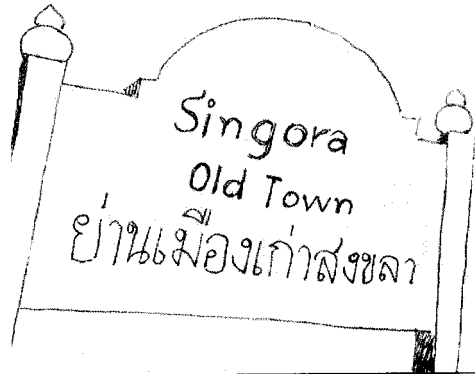 Singora
Old Town
ย่านเมืองเก่าสงขลา